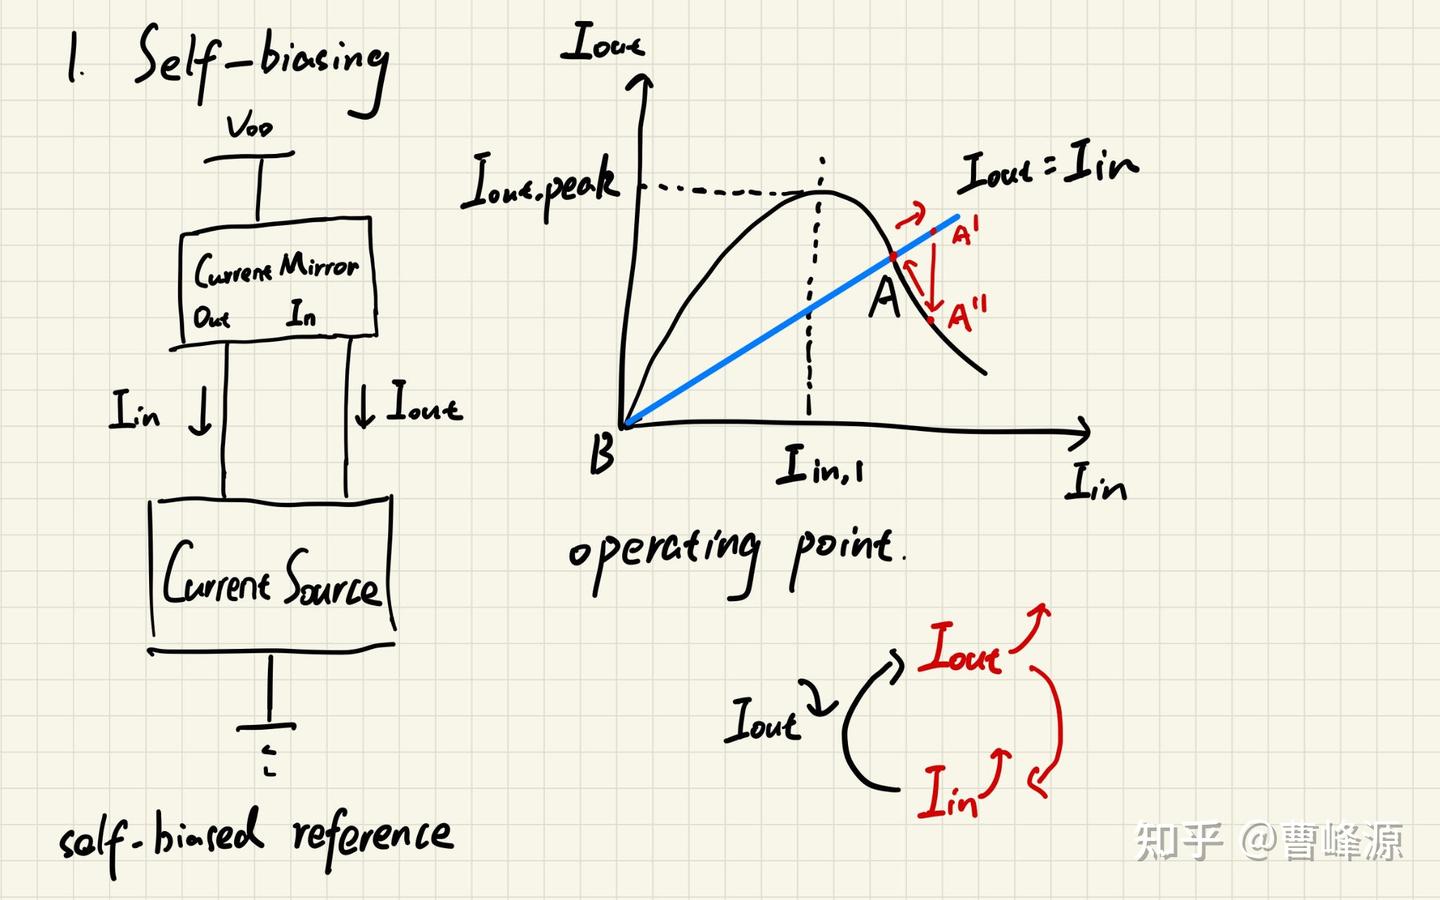 1. Self-biasing
VDD
Current Mirror
Out In
Iin
Iout
Current Source
self-biased reference
Iout
Iout.peak
Iout = Iin
A'
A
A"
B
Iin,1
Iin
operating point.
Iout
Iout
Iin
知乎 @曹峰源